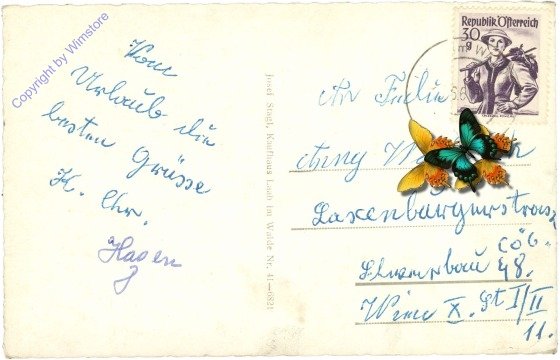 Copyright by Wimstore
Vom
Urlaub die
besten Grüsse
H. Chr.
Hagen
Josef Stagl, Kaufhaus Laab im Walde Nr. 41
Republik Österreich
30
g
An
Anny
Laxenburgerstrasse
48.
Wien X. St I/II
11.